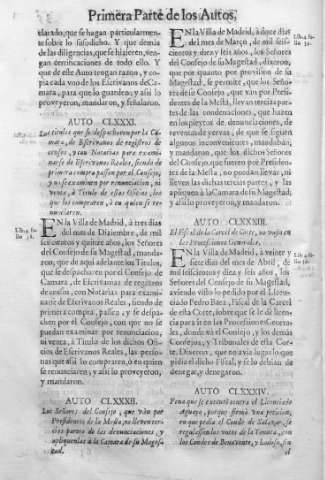 Primera Parte de los Autos,
ularado, que se hagan particularmen-
te sobre lo susodicho. Y que demàs
de las diligencias, que se hizieren, ven-
gan certificaciones de todo ello. Y
que de este Auto tengan razon, y co-
pia cada vno de los Escrivanos de Ca-
mara, para que lo guarden; y assi lo
proveyeron, mandaron, y señalaron.
AUTO CLXXXI.
Los titulos que se despacharen por la Cà-
mara, de Escrivanos de registros de
censos, y con Notarias para exami-
narse de Escrivanos Reales, siendo de
primera compra passen por el Consejo,
y no se examinen por renunciacion, ni
venta, à Titulo de estos Oficios, sino
que los compraren, ò en quien se re-
nunciaren.
EN la Villa de Madrid, à tres dias
del mes de Diziembre, de mil
seiscientos y quinze años, los Señores
del Consejo de su Magestad, manda-
ron, que de aqui adelante los Titulos,
que se despacharen por el Consejo de
Camara, de Escrivanos de registros
de censos, con Notarias para exami-
narse de Escrivanos Reales, siendo de
primera compra, passe, y se despa-
chen por el Consejo, con que no se
puedan examinar por renunciacion,
ni venta, à Titulo de los dichos Ofi-
cios de Escrivanos Reales, las perso-
nas que assi lo compraren, ò en quien
se renunciaren, y assi lo proveyeron,
y mandaron.
AUTO CLXXXII.
Los Señores del Consejo, que vàn por
Presidentes de la Mesta, no lleven ter-
cias partes de las denunciaciones, y
apliquenlas à la Camara de su Mages-
tad.
EN la Villa de Madrid, à doze dias
del mes de Março, de mil seis-
cientos y diez y seis años, los Señores
del Consejo de su Magestad, dixeron,
que por quanto por provision de su
Magestad, se permite, que los Seño-
res de el Consejo, que van por Presi-
dentes de la Mesta, lleven tercias par-
tes de las condenaciones, que hazen
en los pleytos de denunciaciones, de
reventa de yervas, de que se siguen
algunos inconvenientes, mandavan,
y mandaron, que los dichos Señores
del Consejo, que fueren por Presiden-
tes de la Mesta, no puedan llevar, ni
lleven las dichas tercias partes, y las
apliquen à la Camara de su Magestad;
y assi lo proveyeron, y mandaron.
AUTO CLXXXIII.
El Fiscal de la Carcel de Corte, no vaya en
las Procesiones Generales.
EN la Villa de Madrid, à veinte y
siete dias del mes de Abril, de
mil seiscientos y diez y seis años, los
Señores del Consejo de su Magestad,
aviendo visto lo pedido por el Licen-
ciado Pedro Baez, Fiscal de la Carcel
de esta Corte, sobre que se le dè licen-
cia para ir en las Procesiones Genera-
les, donde và el Consejo, y los demàs
Consejos, y Tribunales de esta Cor-
te. Dixeron, que no avia lugar lo que
pidiò el dicho Fiscal, y se lo debian de
denegar, y denegaron.
AUTO CLXXXIV.
el